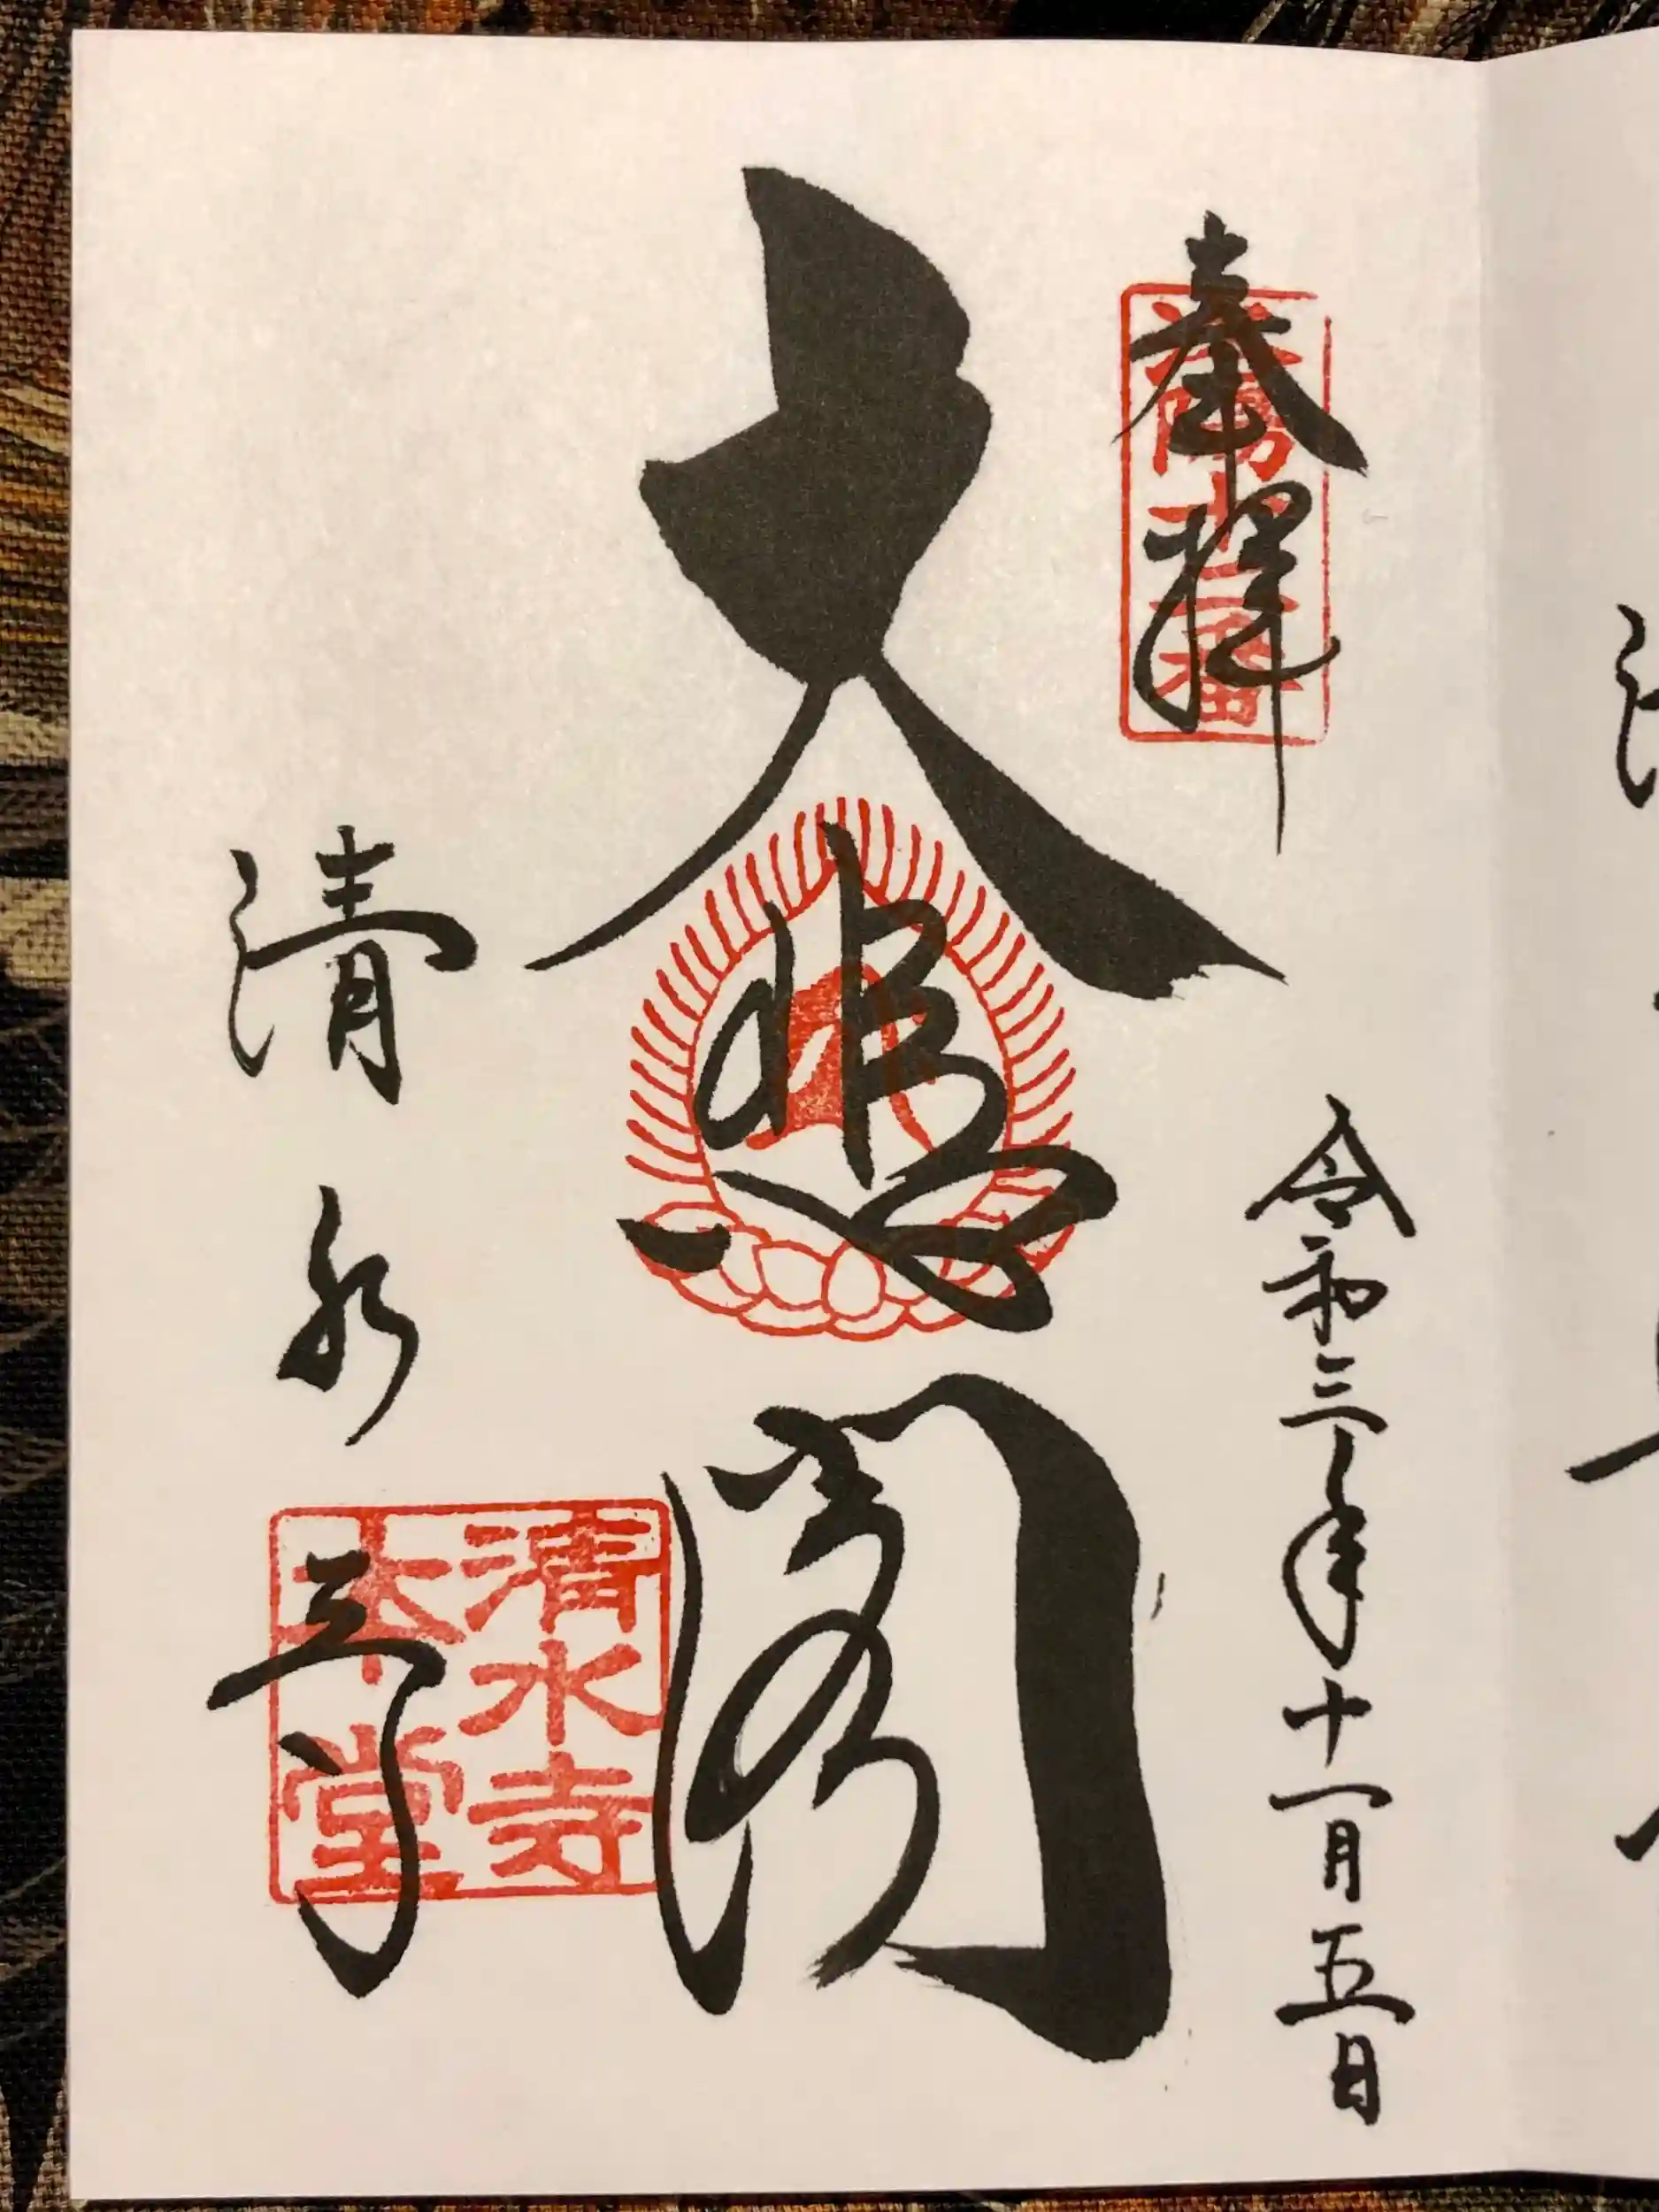 奉拝
洛陽十二番
令和三年十一月五日
大悲閣
清水寺
清水寺
本堂